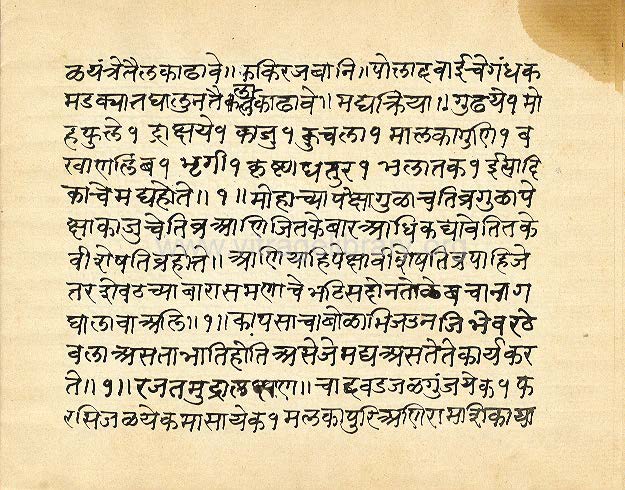 ळयंत्रेतैलकाढावे॥ फकिरजबानि॥ पोलादवाईचेगंधक
मडक्यातघालुनतैलकाढावे॥ मद्यक्रिया॥ गुढये१ मो
हफुले१ द्राक्षये१ काजु१ कुचला१ मालकागुणि१ ब
खाणलिंब१ भृगी१ कृष्णधतुर१ भलातक१ ईत्यादि
काचेमद्यहोते॥१॥ मोहाच्यापेक्षागुळाचतिव्रगुळापे
क्षाकाजुचेतिव्रआणिजितकेबारआधिकद्यावेतितके
वीशेषतिव्रहोते॥ आणियाहिपेक्षावीशेषतिव्रपाहिजे
तरशेवठच्याबारासमणाचेभठिसदोनतोळेबचानाग
घालावाअलि॥१॥ कापसाचाबोळाभिजउनजिभेवरठे
वलाअसताभातिहोतिअसेजेमद्यअसतेतेकार्यकर
ते॥१॥ रजतमुद्रालक्षण॥ चादवडजळगुंजयेक१ फ
रसिजळयेकमासायेक१ मलकापुरिआणिरामाशिकाया
www.vitragelibrary.org